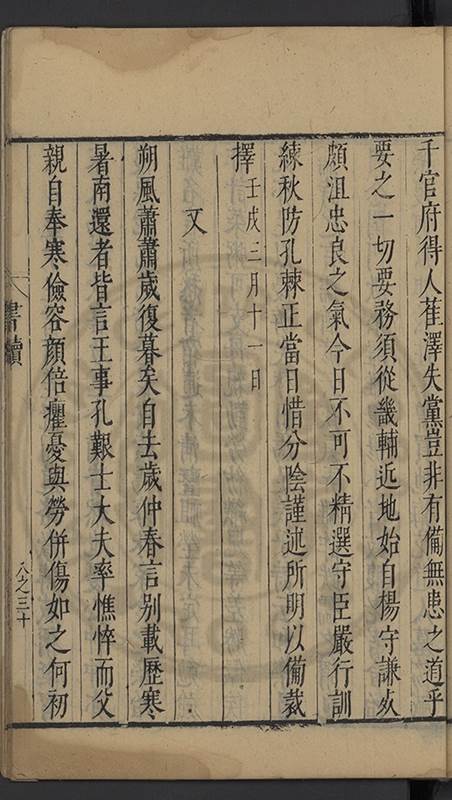 千官府得人萑澤失黨豈非有備無患之道乎
要之一切要務須從畿輔近地始自楊守謙死
頗沮忠良之氣今日不可不精選守臣嚴行訓
練秋防孔棘正當日惜分陰謹述所明以備裁
擇壬戌三月十一日
又
朔風蕭蕭歲復暮矣自去歲仲春言别載歷寒
暑南還者皆言王事孔艱士大夫率憔悴而父
親自奉寒儉容顏倍癯憂與勞併傷如之何初
書牘
八之三十